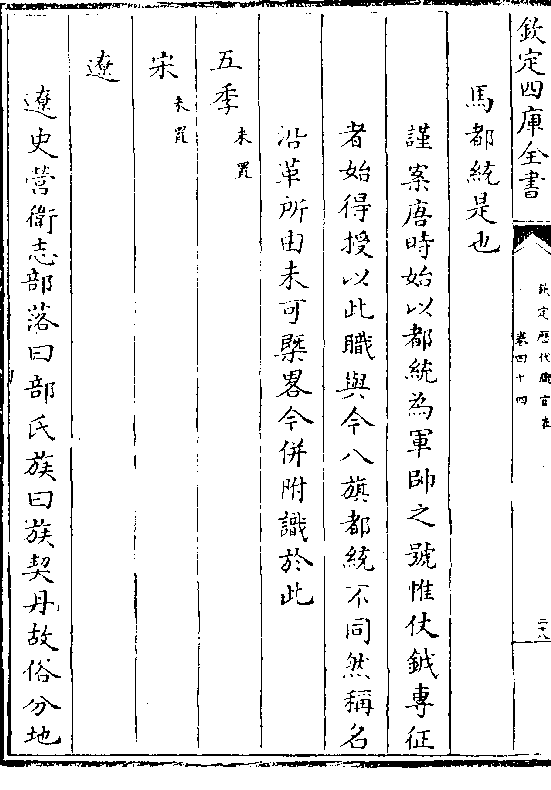 欽定四庫全書
欽定歷代職官表
卷四十四
二十八
馬都統是也
謹案唐時始以都統為軍帥之號惟仗鉞專征
者始得授以此職與今八旗都統不同然稱名
沿革所由未可槩畧今併附識於此
五季未置
宋未置
遼
遼史營衛志部落曰部氏族曰族契丹故俗分地